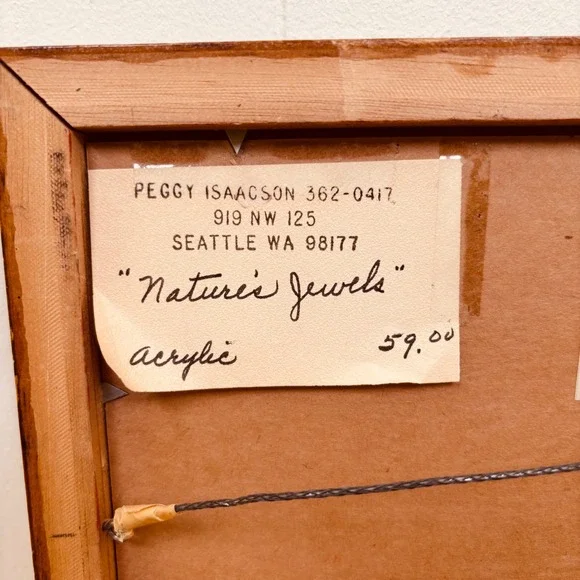 PEGGY ISAACSON 362-0417
919 NW 125
SEATTLE WA 98177
"Nature's Jewels"
acrylic 59.00